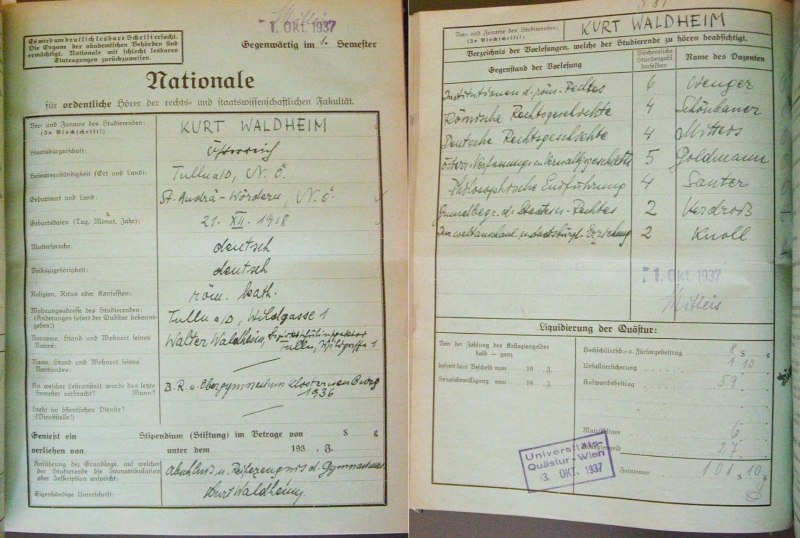 Es wird um deutlich lesbare Schrift ersucht.
Die Organe der akademischen Behörden sind
ermächtigt, Nationale mit schlecht lesbaren
Eintragungen zurückzuweisen.
Mitteis
1. OKT. 1937
Gegenwärtig im 1. Semester
Nationale
für ordentliche Hörer der rechts- und staatswissenschaftlichen Fakultät.
Vor- und Zuname des Studierenden: KURT WALDHEIM
(In Blockschrift!)
Staatsbürgerschaft: Österreich
Heimatszuständigkeit (Ort und Land): Tulln a/D, N.Ö.
Geburtsort und Land: St. Andrä-Wördern, N.Ö.
Geburtsdaten (Tag, Monat, Jahr): 21. XII. 1918
Muttersprache: deutsch
Volkszugehörigkeit: deutsch
Religion, Ritus oder Konfession: röm. kath.
Wohnungsadresse des Studierenden: Tulln a/D, Wildgasse 1
(Änderungen sofort der Quästur bekannt-
geben!)
Vorname, Stand und Wohnort seines Vaters: Walter Waldheim, Bezirksschulinspektor
Tulln, Wildgasse 1
Name, Stand und Wohnort seines
Vormundes:
An welcher Lehranstalt wurde das letzte B.R. u. Obergymnasium Klosterneuburg
Semester verbracht? Wann? 1936
Steht im öffentlichen Dienste?
(Dienststelle!)
Genießt ein Stipendium (Stiftung) im Betrage von S g
verliehen von unter dem 193 Z.
Anführung der Grundlage, auf welcher
der Studierende die Immatrikulation
oder Inskription anspricht: Abschluss u. Reifezeugnis d. Gymnasiums
Eigenhändige Unterschrift: Kurt Waldheim
Vor- und Zuname des Studierenden: KURT WALDHEIM
(In Blockschrift!)
Verzeichnis der Vorlesungen, welche der Studierende zu hören beabsichtigt.
Gegenstand der Vorlesung
Wöchentliche
Stundenzahl
derselben
Name des Dozenten
Institutionen d. röm. Rechtes 6 Wenger
Römische Rechtsgeschichte 4 Schönbauer
Deutsche Rechtsgeschichte 4 Mitteis
Österr. Verfassungs u. Verwaltgsgeschichte 5 Goldmann
Philosophische Einführung 4 Sauter
Grundbegr. d. Rechtes 2 Verdroß
Erziehung 2 Knoll
1. OKT. 1937
Mitteis
Liquidierung der Quästur:
Von der Zahlung des Kollegiengeldes
halb - ganz
befreit laut Bescheid vom 19 Z.
Senatsbewilligung vom 19 Z.
Hochschülersch.- u. Fürsorgebeitrag 8 S g
Unfallversicherung 1 10
Aufwandsbeitrag 59
6
27
Zusammen 101 S 10 g
Universitäts-
Quästur-Wien
13. OKT. 1937